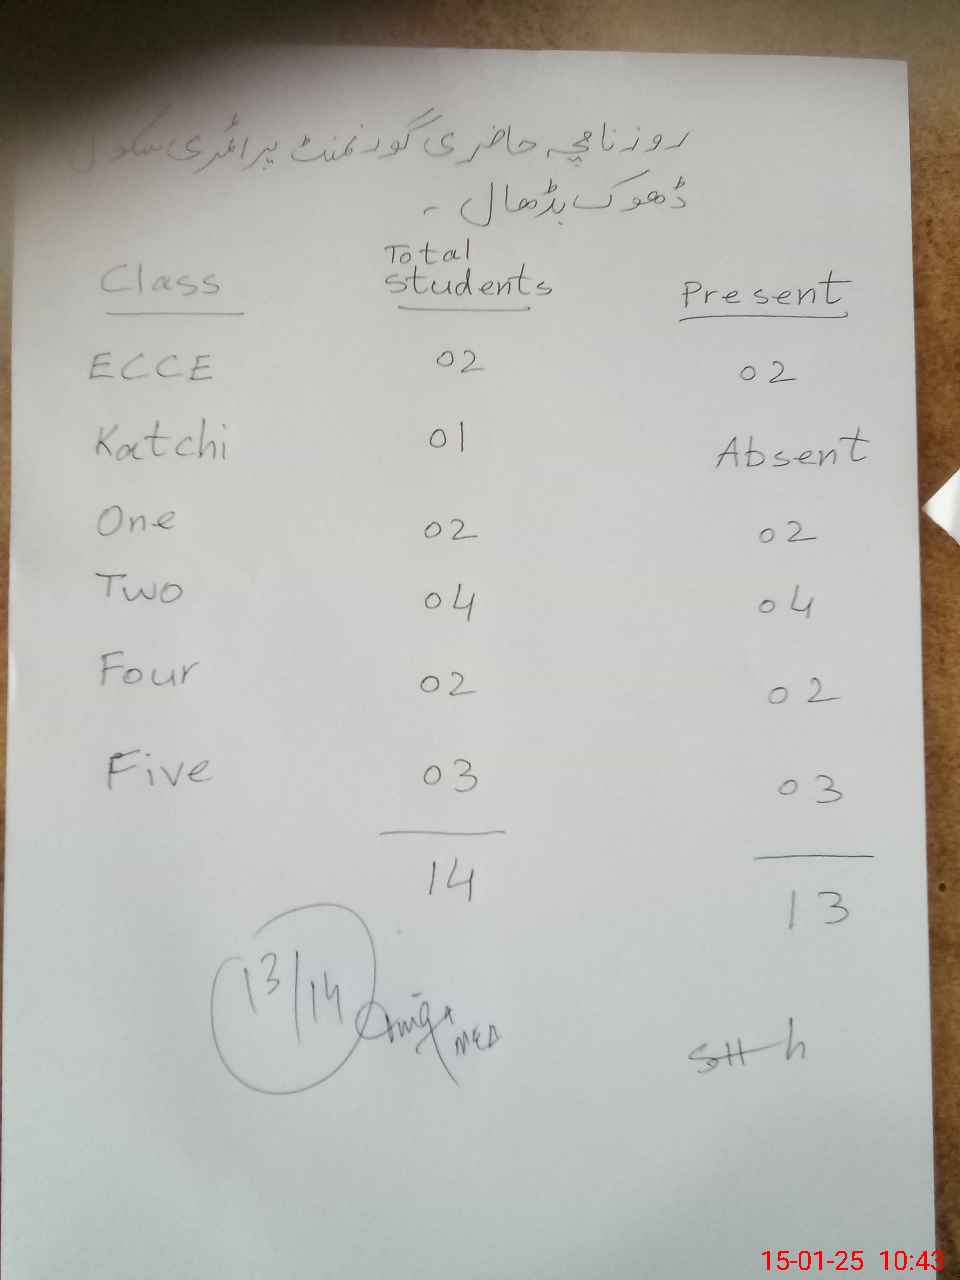 روزنامچہ حاضری گورنمنٹ پرائمری سکول
ڈھوک بڈھال ۔
Class Total Students Present
ECCE 02 02
Katchi 01 Absent
One 02 02
Two 04 04
Four 02 02
Five 03 03
14 13
13/14
15-01-25 10:43